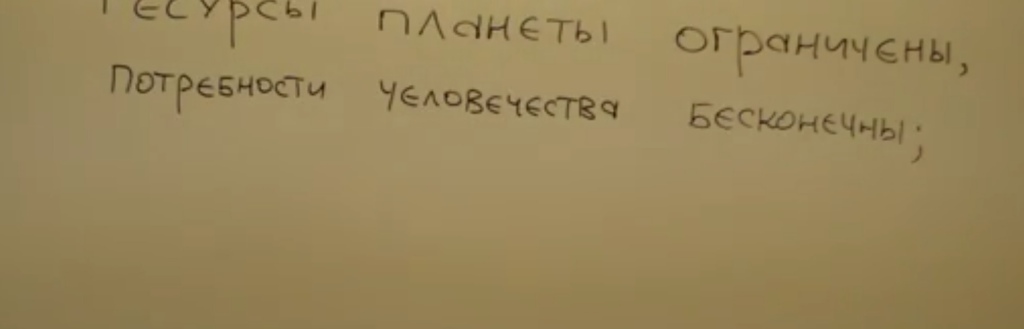 Ресурсы планеты ограничены,
Потребности человечества бесконечны;